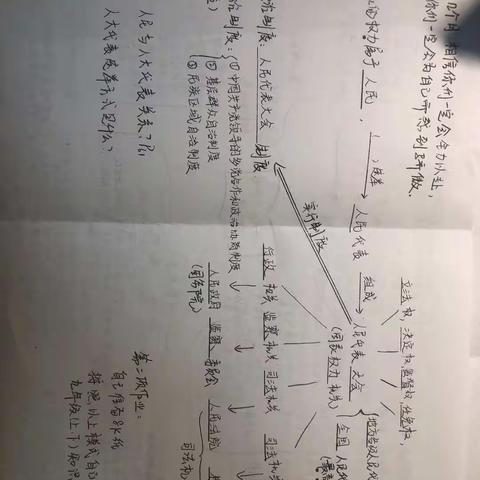 几个月,相信你们一定会全力以赴,
你们一定会为自己所感到骄傲、
权力属于人民,
选举
人民代表
组成
人民代表大会
(国家权力机关)
立法权,决定权,监督权,任免权,
地方各级人民代
全国人民代
实行制度
治制度:人民代表大会制度
治制度:①中国共产党领导的多党合作和政治协商制度
②基层群众自治制度
③民族区域自治制度
行政机关
人民政府
(国务院)
监察机关
监察委员会
司法机关
人民法院
司法机关
司法机
人民与人大代表关系?
人大代表选举方式是什么?
第二项作业:
自己准备8K纸
按照以上模式自己
九年级(上下)知识